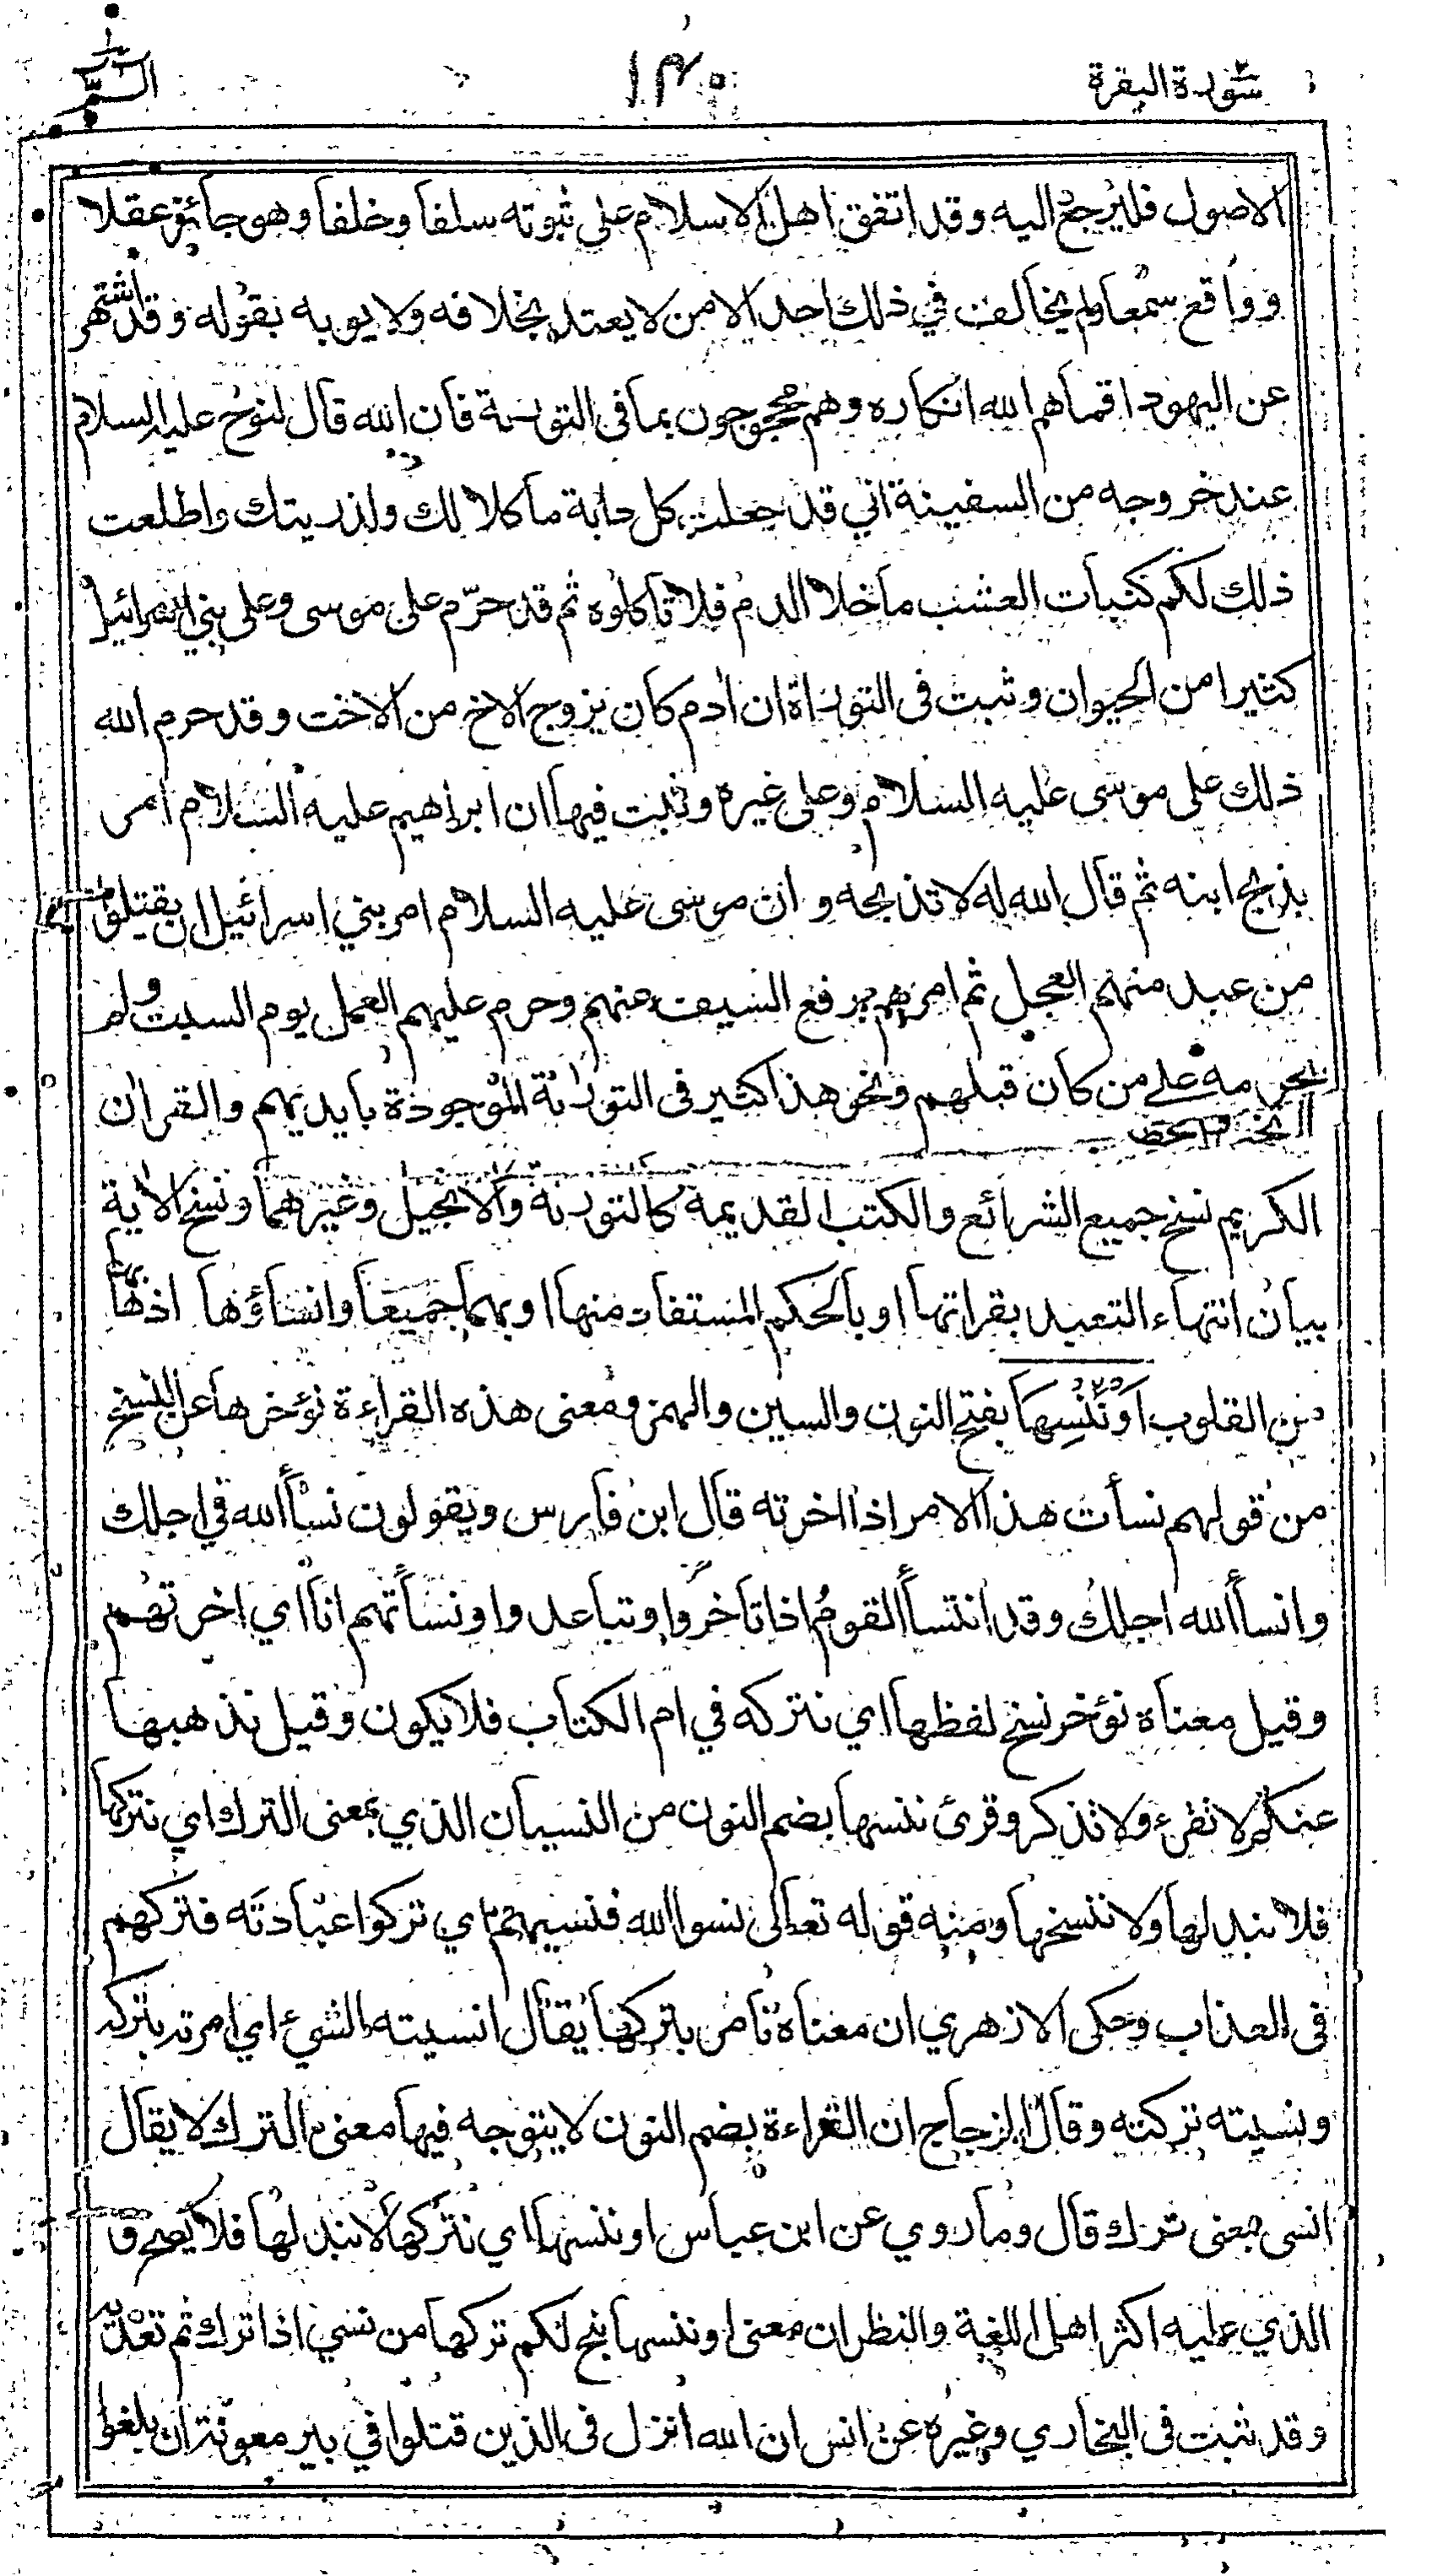 سورة البقرة
١٣٠
الـم
الاصول فليرجع اليه وقد اتفق اهل الاسلام على ثبوته سلفا وخلفا وهو جائز عقلا
وواقع سمعا ولم يخالف في ذلك احد الا من لا يعتد بخلافه ولا يوبه بقوله وقد اشتهر
عن اليهود اقماهم الله انكاره وهم محجوجون بما في التورىة فان الله قال لنوح عليه السلام
عند خروجه من السفينة اني قد جعلت كل دابة ماكلا لك ولذريتك واطلعت
ذلك لكم كنبات العشب ما خلا الدم فلا تأكلوه ثم قد حرّم على موسى وعلى بني اسرائيل
كثيرا من الحيوان وثبت في التوراة ان ادم كان يزوج الاخ من الاخت وقد حرم الله
ذلك على موسى عليه السلام وعلى غيره وثبت فيها ان ابراهيم عليه السلام امر
بذبح ابنه ثم قال الله له لا تذبحه وان موسى عليه السلام امر بني اسرائيل ان يقتلوا
من عبد منهم العجل ثم امرهم برفع السيف عنهم وحرم عليهم العمل يوم السبت ولم
يحرمه على من كان قبلهم ونحو هذا كثير في التورىة الموجودة بايديهم والقران
الكريم نسخ جميع الشرائع والكتب القديمة كالتورىة والانجيل وغيرهما ونسخ الاية
بيان انتهاء التعبد بقراتها او بالحكم المستفاد منها او بهما جميعا وانساؤها اذهابها
من القلوب أو ننسها بفتح النون والسين والهمز ومعنى هذه القراءة نؤخرها عن النسخ
من قولهم نسأت هذا الامر اذا اخرته قال ابن فارس ويقولون نسأ الله في اجلك
وانسأ الله اجلك وقد انتسأ القوم اذا تاخروا وتباعدوا ونسأتهم انا اي اخرتهم
وقيل معناه نؤخر نسخ لفظها اي نتركه في ام الكتاب فلا يكون وقيل نذهبها
عنكم لا تقرء ولا تذكر وقرئ ننسها بضم النون من النسيان الذي بمعنى الترك اي نتركها
فلا نبدلها ولا ننسخها ومنه قوله تعالى نسوا الله فنسيهم اي تركوا عبادته فتركهم
في العذاب وحكى الازهري ان معناه نامر بتركها يقال انسيته الشيء اي امرته بتركه
ونسيته تركته وقال الزجاج ان القراءة بضم النون لا يتوجه فيها معنى الترك لا يقال
انسى بمعنى ترك قال وما روي عن ابن عباس او ننسها اي نتركها لا نبدلها فلا يصح و
الذي عليه اكثر اهل اللغة والنظر ان معنى او ننسها نبح لكم تركها من نسي اذا ترك ثم تعديه
وقد ثبت في البخاري وغيره عن انس ان الله انزل في الذين قتلوا في بير معونة ان بلغوا